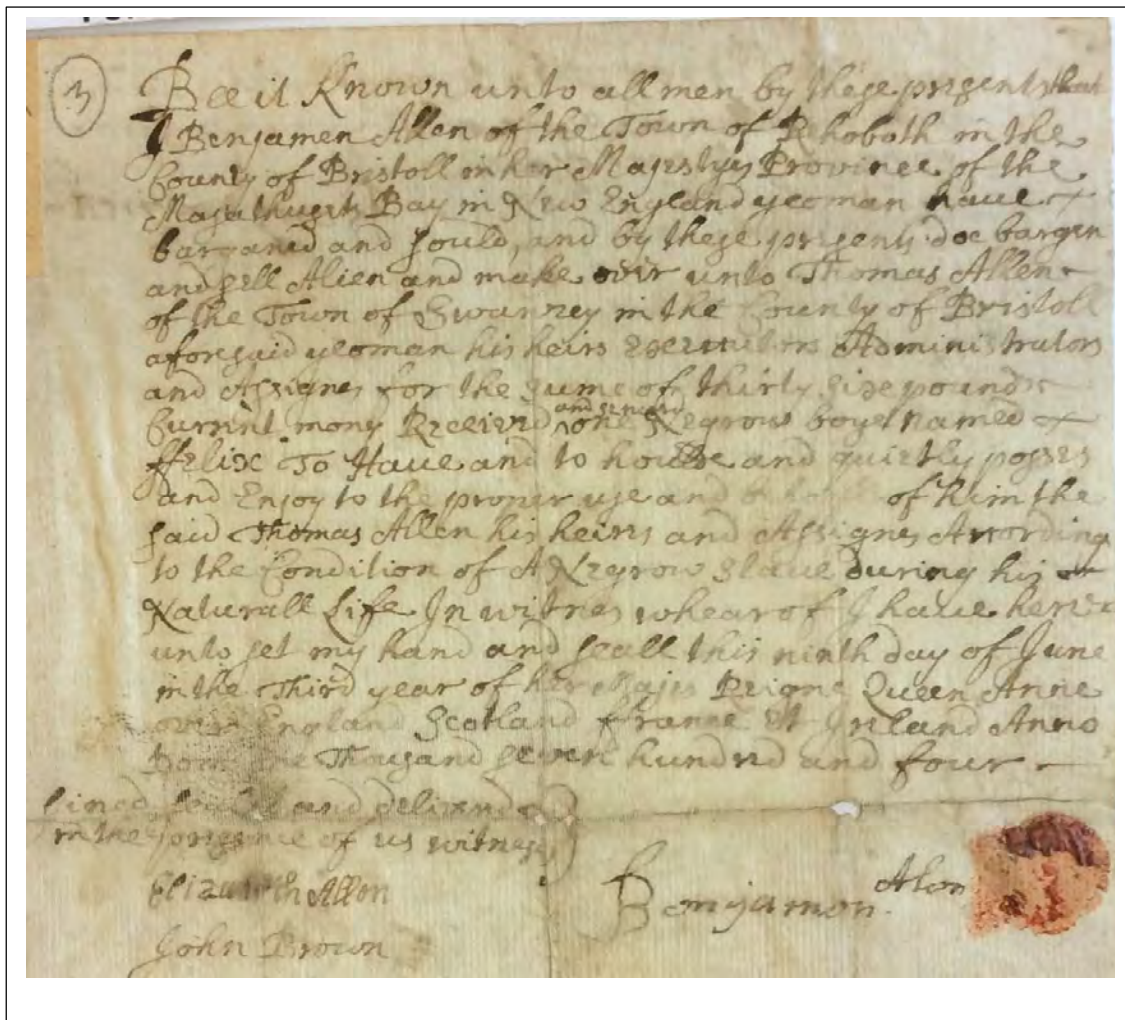 3
Bee it Known unto all men by these presents that
I Benjamen Allen of the Town of Rhoboth in the
County of Bristoll in her Majestys Province of the
Masathusets Bay in New England yeoman haue
barganed and sould, and by these presents doe bargen
and sell Alien and make over unto Thomas Allen
of the Town of Swanzey in the County of Bristoll
aforesaid yeoman his heirs Executters Administrators
and Assignes for the sume of thirty Six pounds
Currint mony Received one Negrow boye named
ffelix To Haue and to and quietly posses
and Enjoy to the proper use and of him the
said Thomas Allen his heirs and Assignes According
to the Condition of A Negrow Slaue during his
Naturall Life In witnes whearof I haue here
unto set my hand and seall this ninth day of June
in the Third year of her Majes Reigne Queen Anne
over England Scotland ffrance & Ireland Anno
Dom one Thousand seven hundred and four
Sined sealed and deliverd
in the presence of us witneses
Elizabeth Allen
John Brown
Benjamen Alen